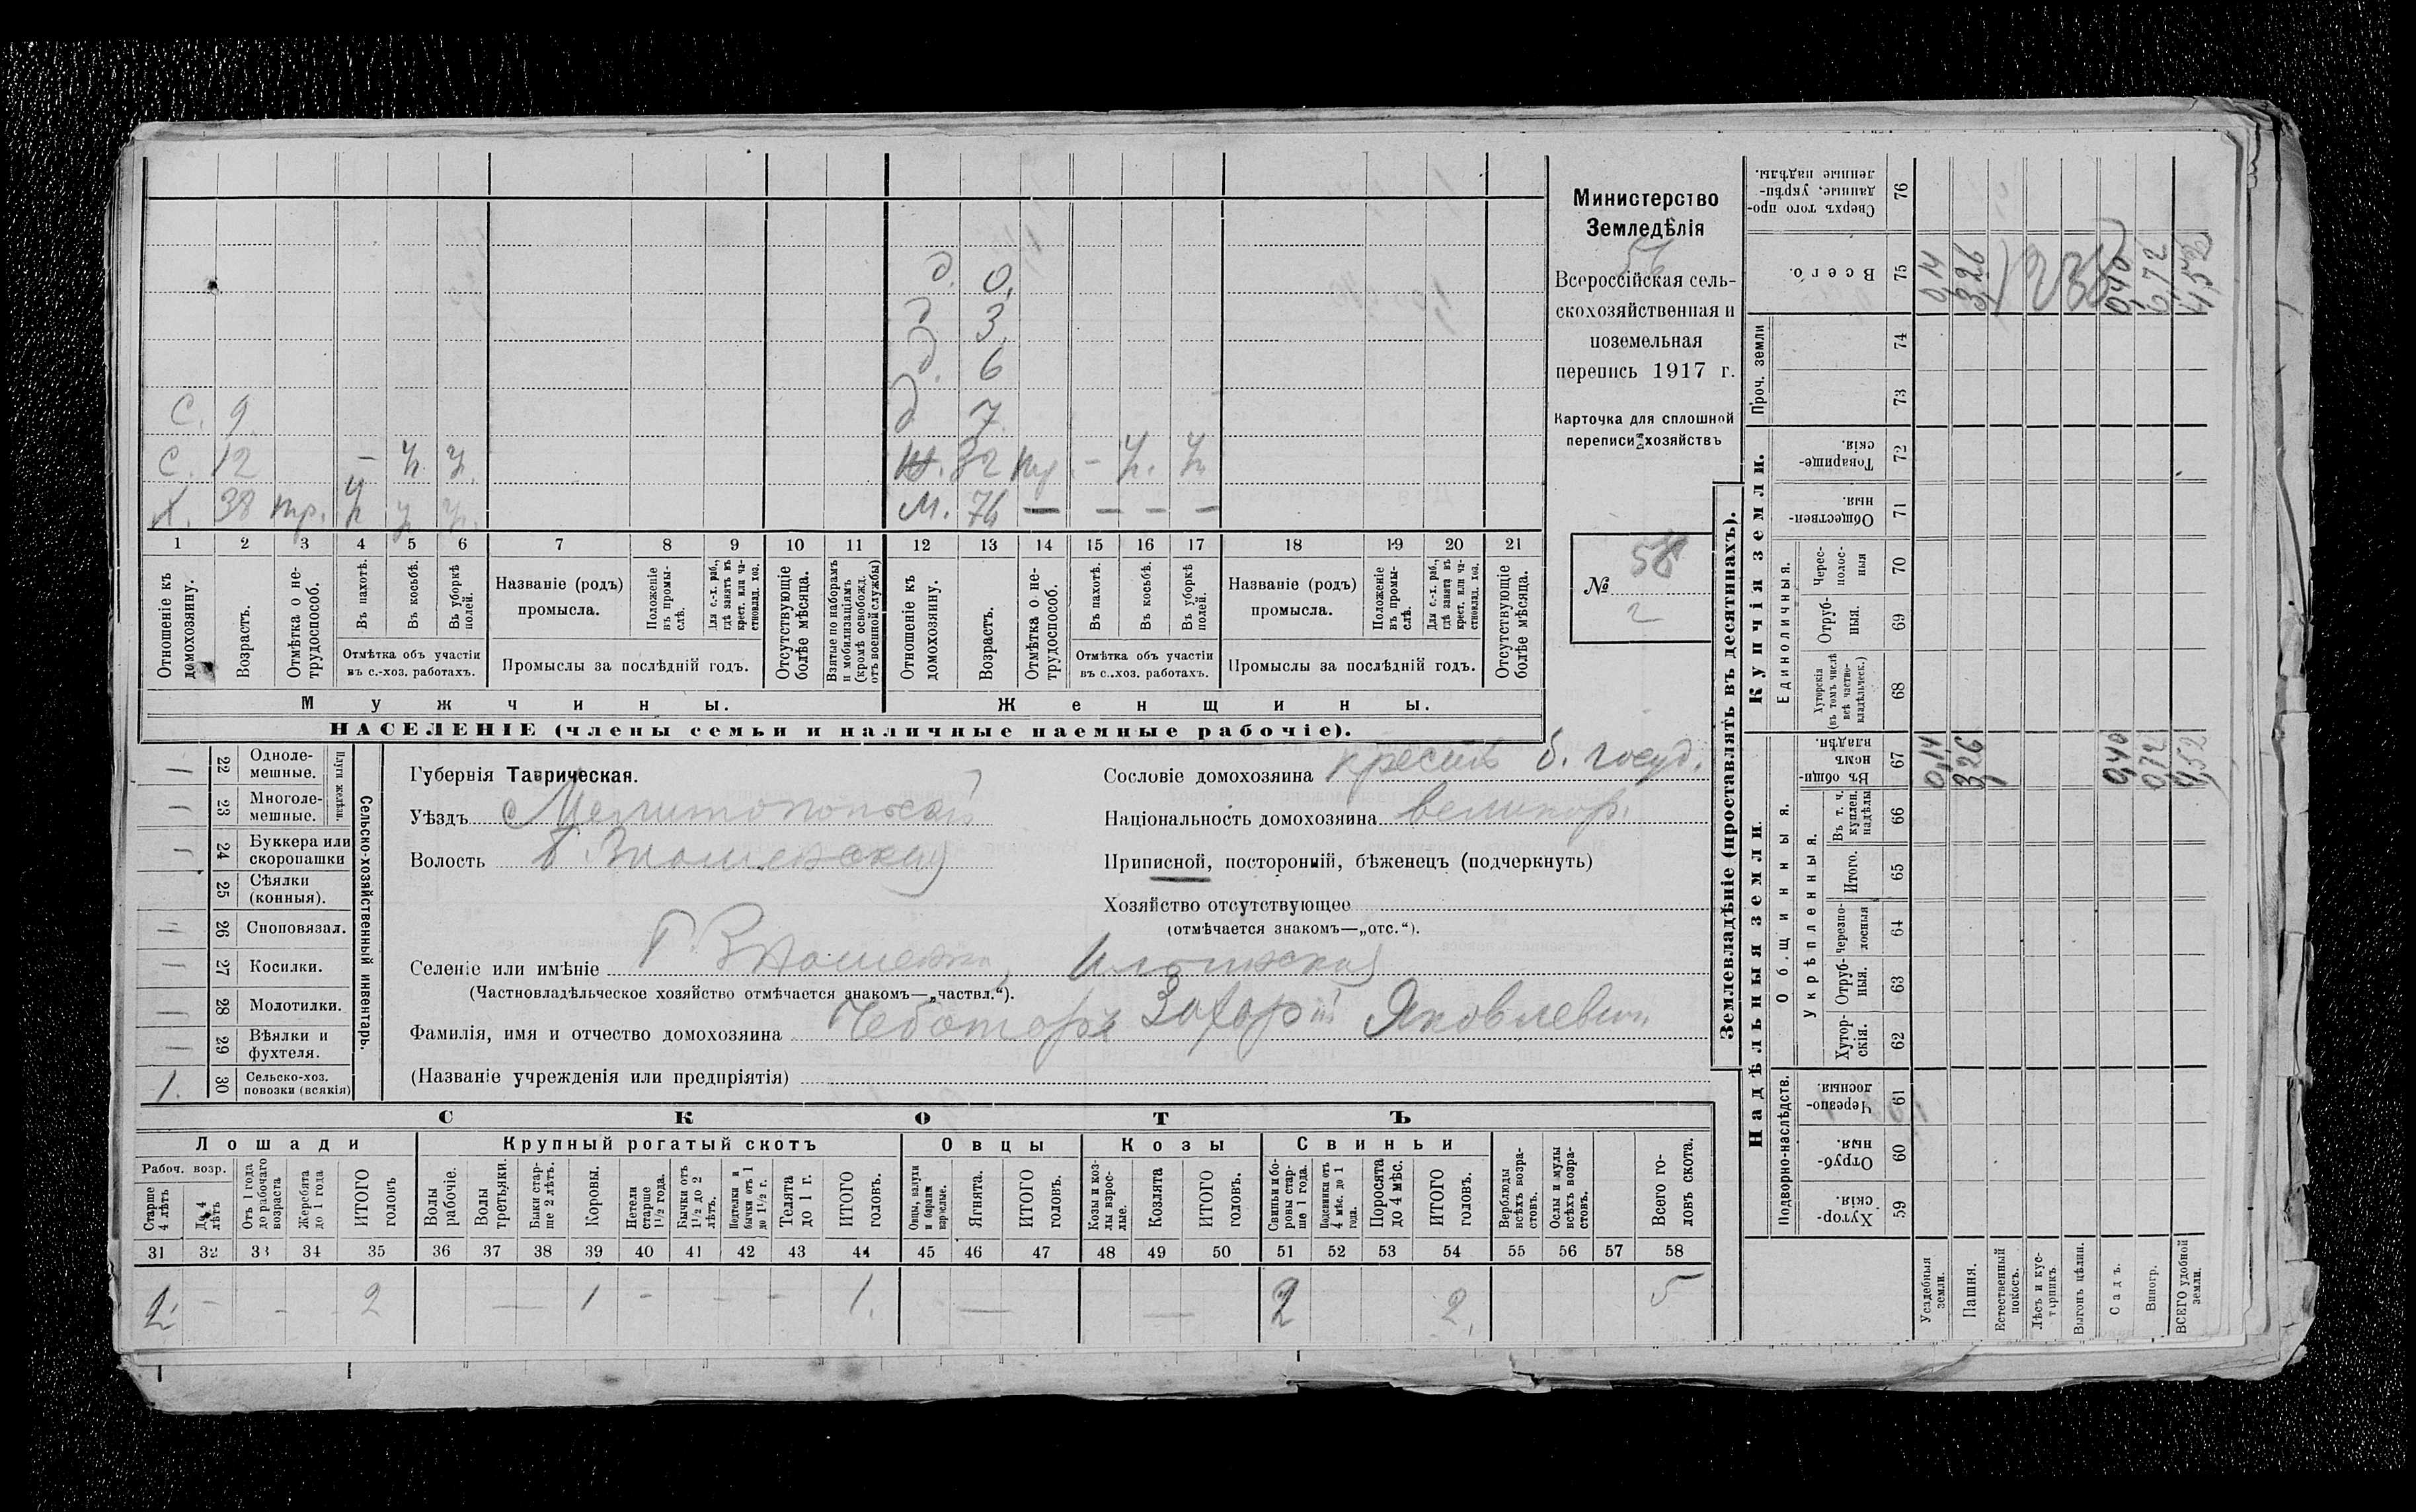 д. 0.
д. 3.
д. 6
С. 9. д. 7.
С. 12 – ч. ч. 32 – ч. ч.
Х. 38 тр. ч ч ч. М. 76 — — — —
1 2 3 4 5 6 7 8 9 10 11 12 13 14 15 16 17 18 19 20 21
Отношеніе къ домохозяину.
Возрастъ.
Отмѣтка о не-трудоспособ.
Въ пахотѣ.
Въ косьбѣ.
Въ уборкѣ полей.
Отмѣтка объ участіи
въ с.-хоз. работахъ.
Названіе (родъ)
промысла.
Положеніе въ промы-слѣ.
Для с.-х. раб., гдѣ занятъ въ крест. или ча-стновлад. хоз.
Промыслы за послѣдній годъ.
Отсутствующіе болѣе мѣсяца.
Взятые по наборамъ и мобилизаціямъ (кромѣ освобожд. отъ военной службы)
Отношеніе къ домохозяину.
Возрастъ.
Отмѣтка о не-трудоспособ.
Въ пахотѣ.
Въ косьбѣ.
Въ уборкѣ полей.
Отмѣтка объ участіи
въ с.-хоз. работахъ.
Названіе (родъ)
промысла.
Положеніе въ промы-слѣ.
Для с.-х. раб., гдѣ занята въ крест. или ча-стновлад. хоз.
Промыслы за послѣдній годъ.
Отсутствующіе болѣе мѣсяца.
Мужчины. Женщины.
НАСЕЛЕНІЕ (члены семьи и наличные наемные рабочіе).
Министерство
Земледѣлія
56
Всероссійская сель-
скохозяйственная и
поземельная
перепись 1917 г.
Карточка для сплошной
переписи хозяйствъ
№ 58
2
Сельско-хозяйственный инвентарь.
Плуги желѣзн.
— 22 Одноле-мешные.
— 23 Многоле-мешные.
— 24 Буккера или скоропашки
25 Сѣялки (конныя).
— 26 Сноповязал.
— 27 Косилки.
— 28 Молотилки.
— 29 Вѣялки и фухтеля.
1. 30 Сельско-хоз. повозки (всякія)
Губернія Таврическая.
Уѣздъ Мелитопольскій
Волость Б. Знаменская
Сословіе домохозяина крестъ б. госуд.
Національность домохозяина великор.
Приписной, посторонній, бѣженецъ (подчеркнуть)
Хозяйство отсутствующее
(отмѣчается знакомъ—„отс.“).
Селеніе или имѣніе Знаменка, Ильинская
(Частновладѣльческое хозяйство отмѣчается знакомъ—„частвл.“).
Фамилія, имя и отчество домохозяина Чеботарь Захарій Яковлевич
(Названіе учрежденія или предпріятія)
СКОТЪ
Лошади Крупный рогатый скотъ Овцы Козы Свиньи
Рабоч. возр.
Старше 4 лѣтъ
До 4 лѣтъ
Отъ 1 года до рабочаго возраста
Жеребята до 1 года
ИТОГО головъ
Волы рабочіе.
Волы третьяки.
Быки стар-ше 2 лѣтъ.
Коровы.
Нетели старше 1½ года.
Бычки отъ 1½ до 2 лѣтъ.
Нетелки и бычки отъ 1 до 1½ г.
Телята до 1 г.
ИТОГО головъ.
Овцы, валухи и бараны взрослые.
Ягнята.
ИТОГО головъ.
Козы и коз-лы взрос-лые.
Козлята
ИТОГО головъ.
Свиньи и бо-ровы стар-ше 1 года.
Подсвинки отъ 4 мѣс. до 1 года.
Поросята до 4 мѣс.
ИТОГО головъ.
Верблюды всѣхъ возра-стовъ.
Ослы и мулы всѣхъ возра-стовъ.
Всего го-ловъ скота.
31 32 33 34 35 36 37 38 39 40 41 42 43 44 45 46 47 48 49 50 51 52 53 54 55 56 57 58
2. – – 2 — 1 – – – 1. — — 2 2. 5
Землевладѣніе (проставлять въ десятинахъ).
Надѣльныя земли. Купчія земли. Проч. земли
Подворно-наслѣдств.
Общинныя.
Укрѣпленныя.
Единоличныя.
Хутор-скія. 59
Отруб-ныя. 60
Черезпо-лосныя. 61
Хутор-скія. 62
Отруб-ныя. 63
Черезпо-лосныя 64
Итого. 65
Въ т. ч. куплен. надѣлы 66
Въ общи-номъ владѣн. 67
Хуторскія (въ томъ числѣ всѣ частно-владѣльческ.) 68
Отруб-ныя. 69
Черес-полос-ныя 70
Обществен-ныя. 71
Товарище-скія. 72
73
74
Всего. 75
Сверхъ того про-данные, укрѣп-ленные надѣлы. 76
Усадебныя земли. 0,14 0,14
Пашня. 3,26 3,26
Естественный покосъ.
Лѣсъ и кус-тарникъ.
Выгонъ цѣлин.
Садъ. 0,40 0,40
Виногр. 0,72 0,72
ВСЕГО удобной земли. 4,52 4,52